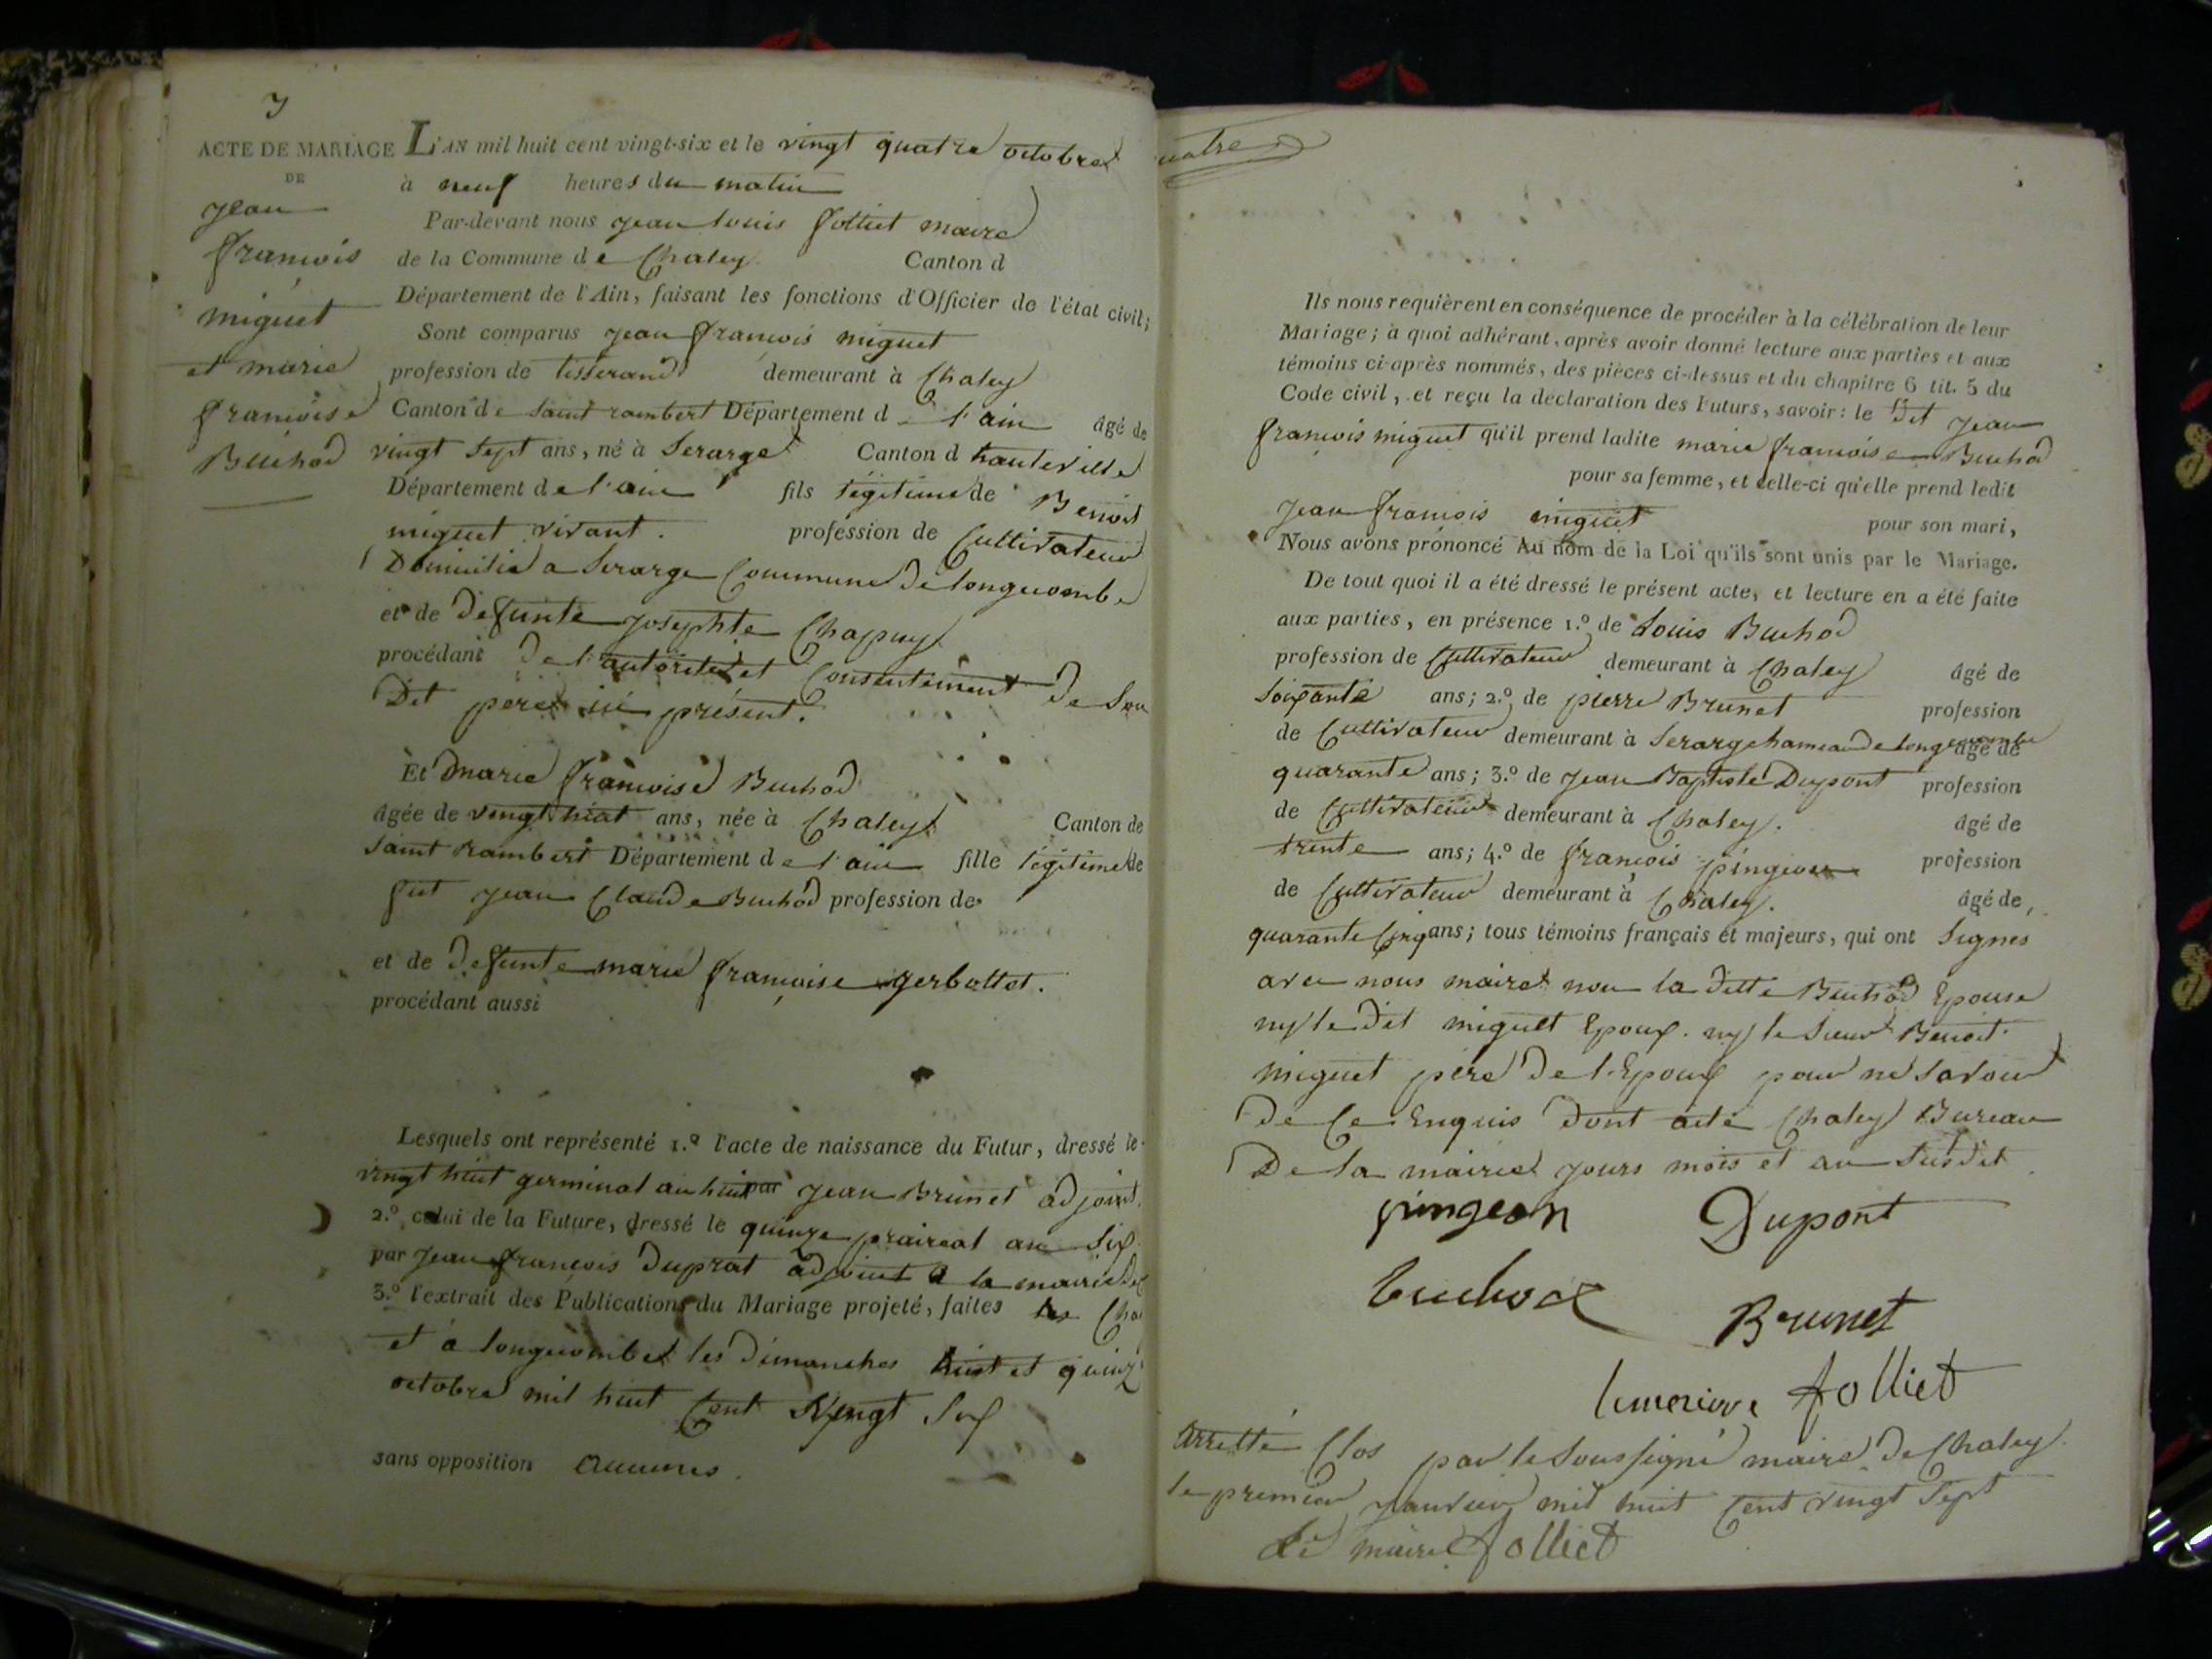 7
ACTE DE MARIAGE
DE
jean
françois
miguet
et marie
françoise
Buchod
L'AN mil huit cent vingt-six et le vingt quatre octobre
à neuf heures du matin
Par-devant nous jean louis folliet maire
de la Commune de Chaley Canton d
Département de l'Ain, faisant les fonctions d'Officier de l'état civil;
Sont comparus jean françois miguet
profession de tisserand demeurant à Chaley
Canton de saint rambert Département d l'ain âgé de
vingt sept ans, né à Serarge Canton d hauteville
Département de l'ain fils légitime de Benoit
miguet vivant. profession de Cultivateur
Domicilié a Serarge Commune de longecombe
et de defunte josephte Chapuy
procédant de l'autorité et Consentement de son
Dit père ici présent.
Et marie françoise Buchod
âgée de vingt huit ans, née à Chaley Canton de
saint rambert Département de l'ain fille légitime de
fut jean Claude Buchod profession de
et de defunte marie françoise gerbollet.
procédant aussi
Lesquels ont représenté 1.º l'acte de naissance du Futur, dressé le
vingt huit germinal an huit par jean Brunet adjoint.
2.º celui de la Future, dressé le quinze praireal an six
par jean françois Duprat adjoint a la mairie de
3.º l'extrait des Publications du Mariage projeté, faites Cha
et a longecombe les dimanches huit et quinz
octobre mil huit Cent Vingt Six
sans opposition aucunes.
uatre
Ils nous requièrent en conséquence de procéder à la célébration de leur
Mariage; à quoi adhérant, après avoir donné lecture aux parties et aux
témoins ci-après nommés, des pièces ci-dessus et du chapitre 6 tit. 5 du
Code civil, et reçu la déclaration des Futurs, savoir: le dit jean
françois miguet qu'il prend ladite marie françoise Buchod
pour sa femme, et celle-ci qu'elle prend ledit
jean françois miguet pour son mari,
Nous avons prononcé Au nom de la Loi qu'ils sont unis par le Mariage.
De tout quoi il a été dressé le présent acte, et lecture en a été faite
aux parties, en présence 1.º de Louis Buchod
profession de Cultivateur demeurant à Chaley âgé de
soixante ans; 2.º de pierre Brunet profession
de Cultivateur demeurant à Serarge hameau de longecombe âgé de
quarante ans; 3.º de jean Baptiste Dupont profession
de Cultivateur demeurant à Chaley. âgé de
trente ans; 4.º de françois pingeon profession
de Cultivateur demeurant à Chaley. âgé de
quarante Cinq ans; tous témoins français et majeurs, qui ont signes
avec nous maire non la ditte Buchod Epouse
ny le dit miguet Epoux. ny le sieur Benoit
miguet père de l'Epoux pour ne savoir
de Ce Enquis dont acte Chaley Bureau
De la mairie jours mois et an susdit
pingeon Dupont
buchod Brunet
folliet
Arretté Clos par le soussigné maire de Chaley
le premier janvier mil huit Cent vingt sept
le maire folliet